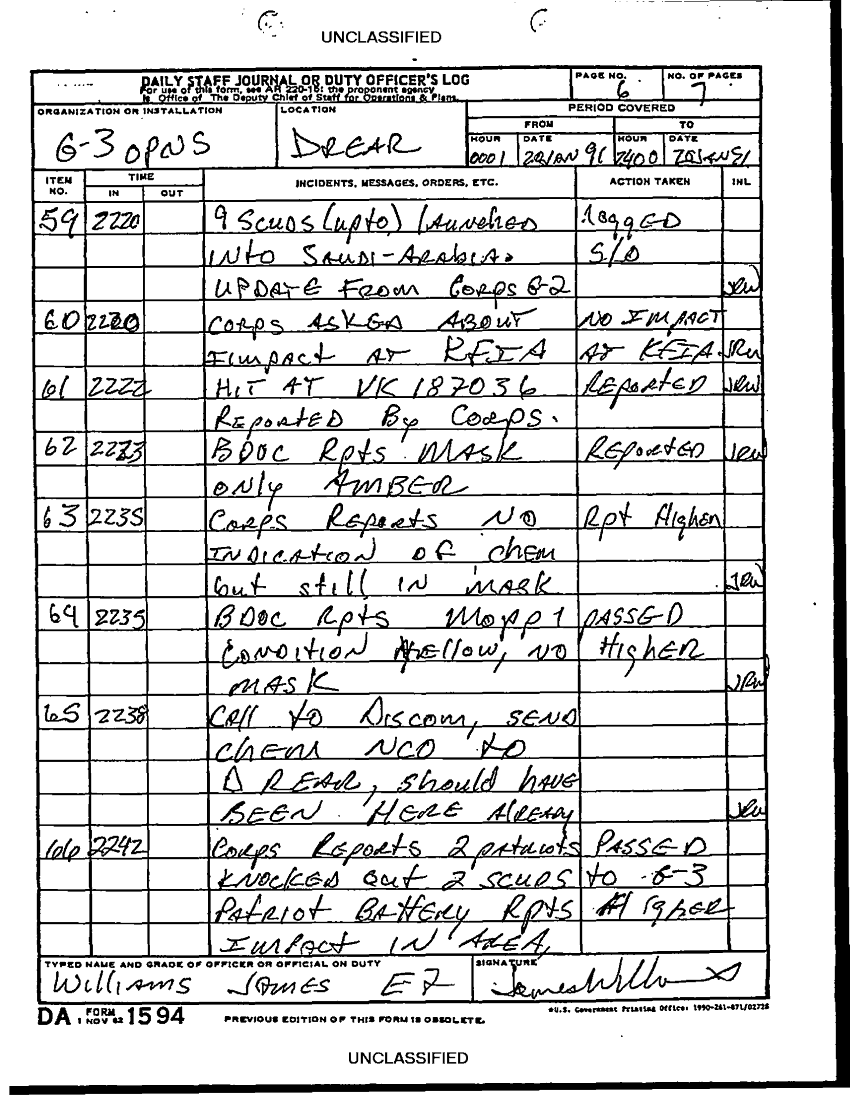 UNCLASSIFIED
DAILY STAFF JOURNAL OR DUTY OFFICER'S LOG
For use of this form, see AR 220-15; the proponent agency
is Office of The Deputy Chief of Staff for Operations & Plans.
PAGE NO.
6
NO. OF PAGES
7
ORGANIZATION OR INSTALLATION
G-3 OPNS
LOCATION
DREAR
PERIOD COVERED
FROM
TO
HOUR
DATE
HOUR
DATE
0001
20JAN 91
2400
20JAN91
ITEM NO.
TIME
IN
OUT
INCIDENTS, MESSAGES, ORDERS, ETC.
ACTION TAKEN
INL
59 2220 9 SCUDS (upto) lAUNCHED logged
INTO SAUDI-ARABIA. S/O
UPDATE FROM CORPS G-2 JRW
60 2220 CORPS ASKED ABOUT NO IMPACT
IImpACT AT KFIA AT KFIA. JRW
61 2222 HIT AT VK 187036 REPORTED JRW
REPORTED By CORPS.
62 2223 BDOC Rpts MASK REPORTED JRW
ONly AMBER
63 2235 CORPS REPORTS NO Rpt HigheR
INDICATION OF chEM
but still IN MASK JRW
64 2235 BDOC Rpts Mopp 1 PASSED
CONDITION yEllow, NO HigHER
MASK JRW
65 2238 CAll to DISCOM, SEND
chEM NCO to
D REAR, should hAVE
BEEN HERE AlREADY JRW
66 2242 CORPS REPORTS 2 pAtRIOTS PASSED
KNOCKED out 2 SCUDS to G-3
PATRIOT BATTERY Rpts HIgHER
IMPACT IN AREA,
TYPED NAME AND GRADE OF OFFICER OR OFFICIAL ON DUTY
WilliAmS JAMES E7
SIGNATURE
James Williams
DA FORM 1 NOV 62 1594
PREVIOUS EDITION OF THIS FORM IS OBSOLETE.
*U.S. Government Printing Office: 1990-261-871/02728
UNCLASSIFIED